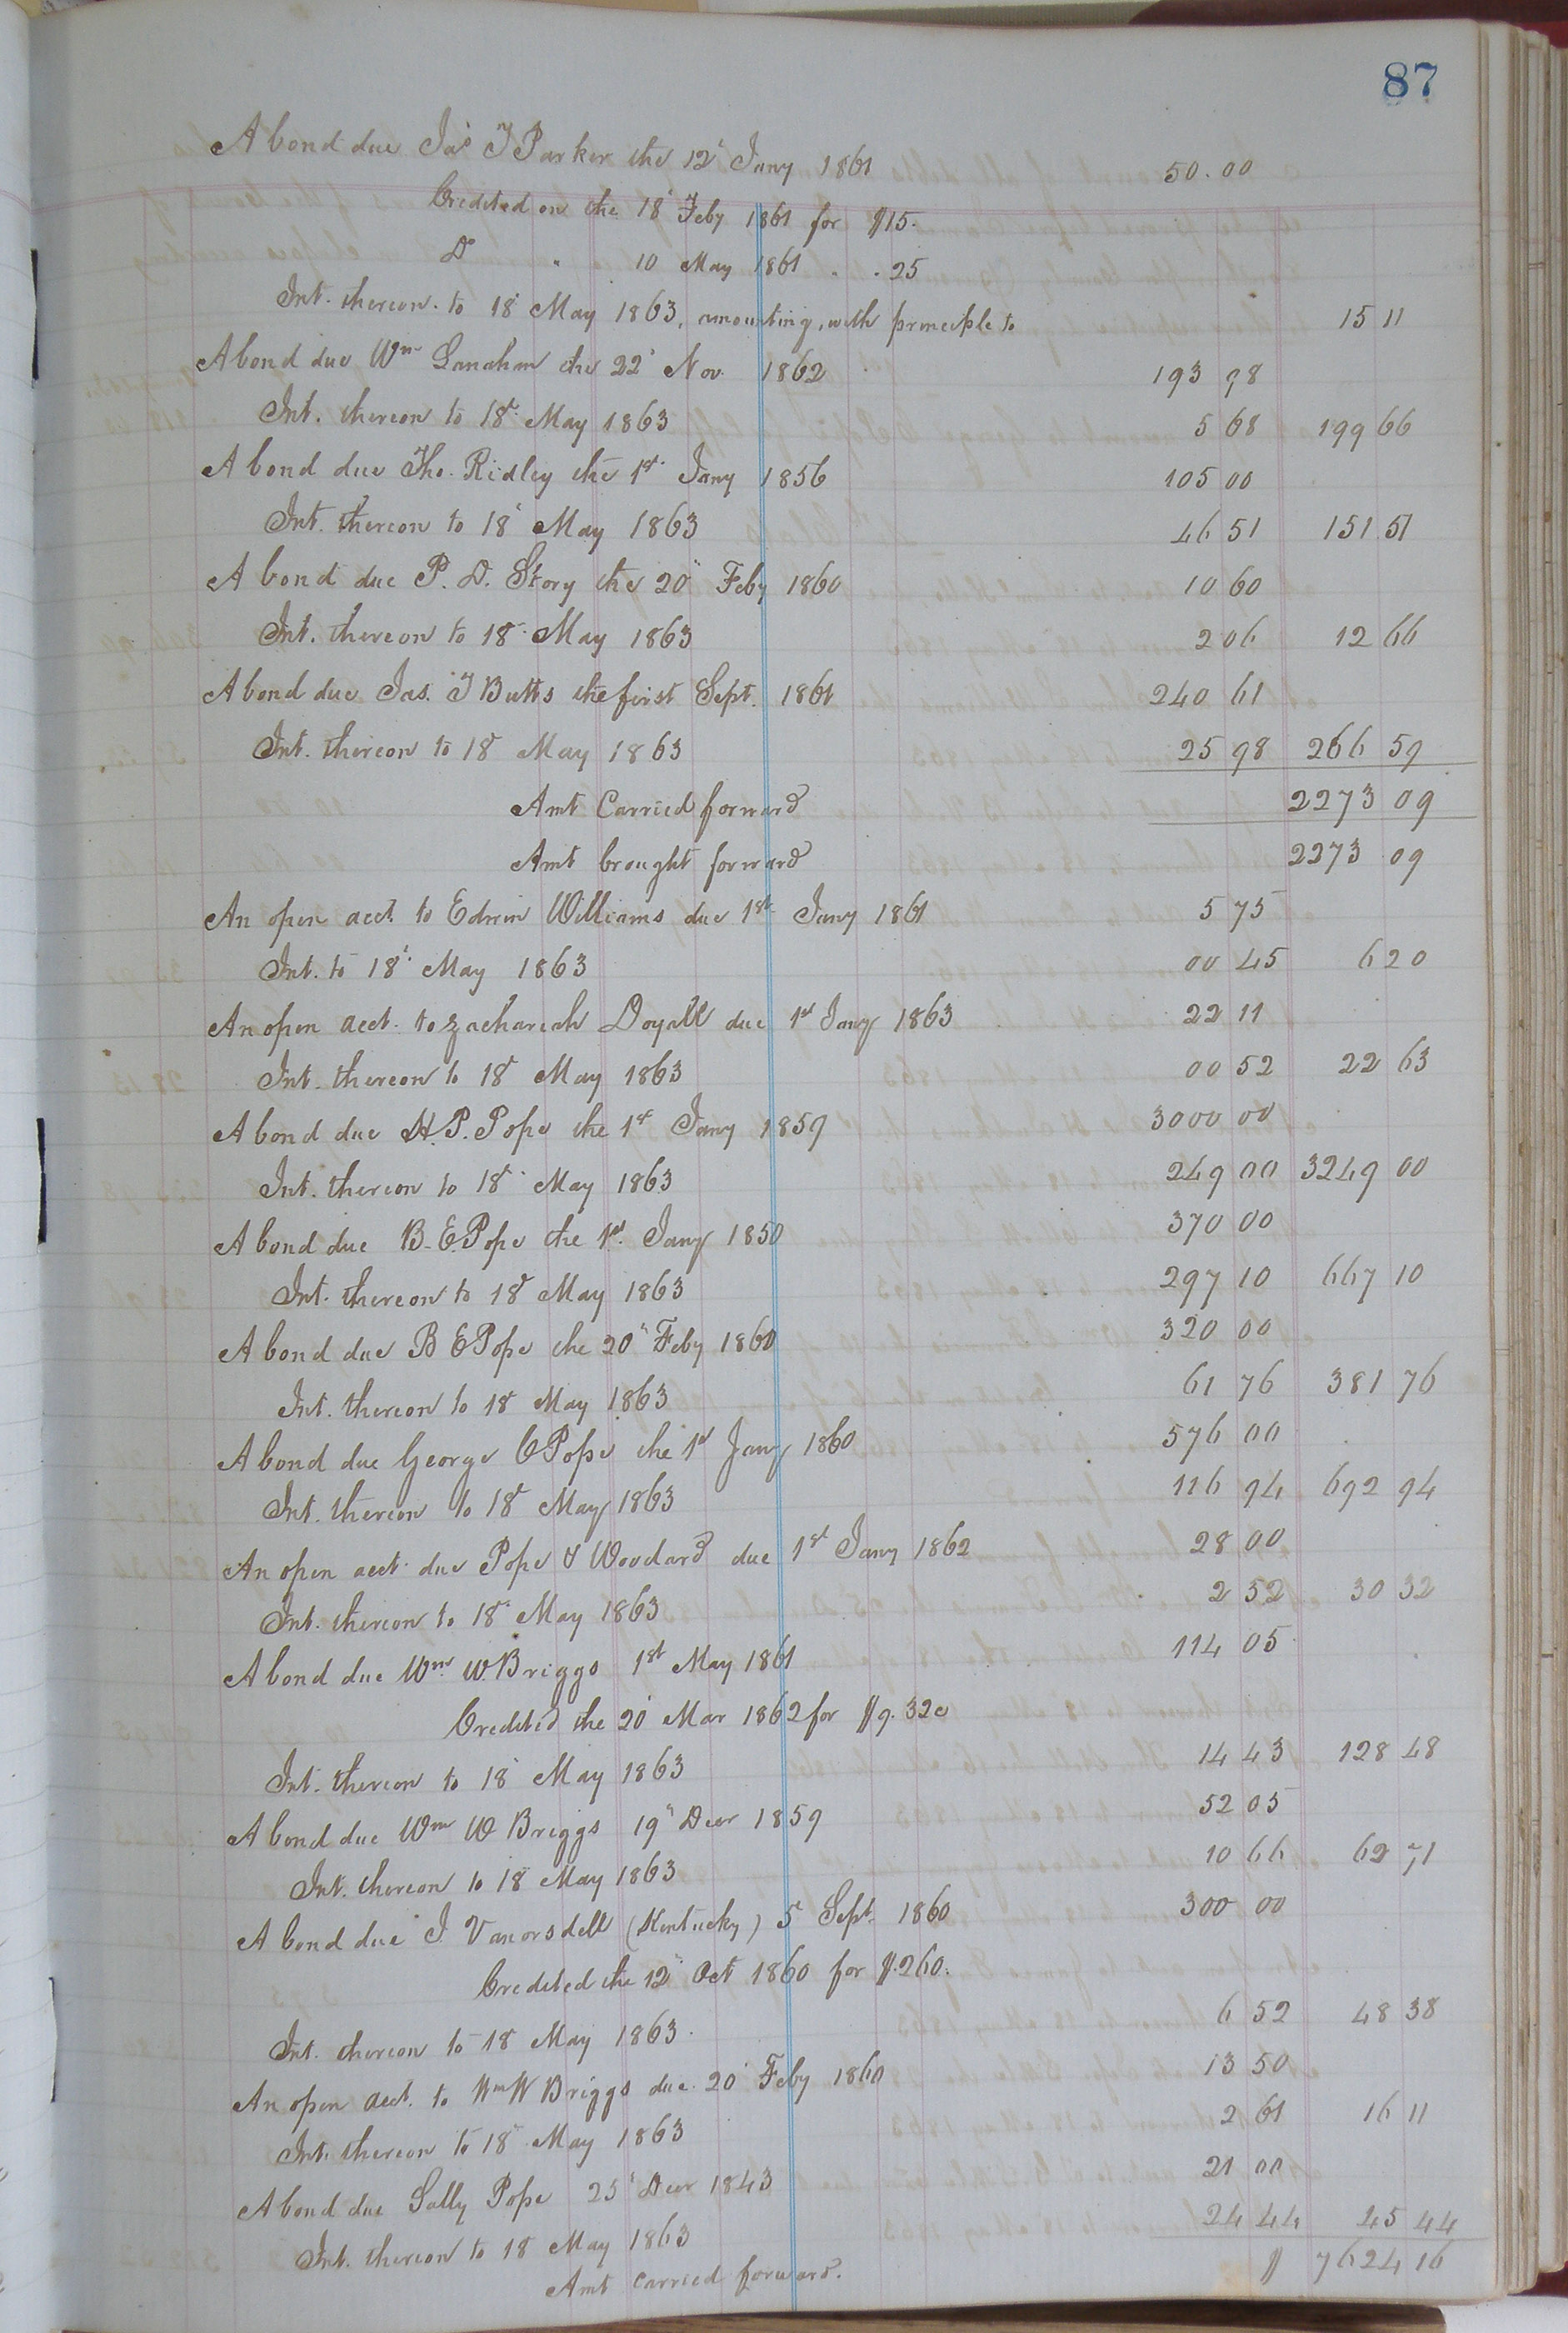 87
A bond due Jas T Parker the 12' Jany 1861 50.00
Credited on the 18' Feby 1861 for $15.
Do " 10 May 1861 " " 25
Int. thereon to 18' May 1863, amounting, with principle to 15 11
A bond due Wm Lanaham the 22' Nov. 1862 193 98
Int. thereon to 18th May 1863 5 68 199 66
A bond due Tho. Ridley the 1st Jany 1856 105 00
Int. thereon to 18' May 1863 46 51 151 51
A bond due P. D. Story the 20" Feby 1860 10 60
Int. thereon to 18th May 1863 2 06 12 66
A bond due Jas. T Butts the first Sept. 1861 240 61
Int. thereon to 18th May 1863 25 98 266 59
Amt Carried forward 2273 09
Amt brought forward 2273 09
An open acct. to Edwin Williams due 1st Jany 1861 5 75
Int. to 18' May 1863 00 45 6 20
An open acct. to Zachariah Doyall due 1st Jany 1863 22 11
Int. thereon to 18th May 1863 00 52 22 63
A bond due H. P. Pope the 1st Jany 1859 3000 00
Int. thereon to 18th May 1863 249 00 3249 00
A bond due B. E. Pope the 1st Jany 1850 370 00
Int. thereon to 18th May 1863 297 10 667 10
A bond due B E Pope the 20" Feby 1860 320 00
Int. thereon to 18th May 1863 61 76 381 76
A bond due George C Pope the 1st Jany 1860 576 00
Int. thereon to 18th May 1863 116 94 692 94
An open acct due Pope & Woodard due 1st Jany 1862 28 00
Int. thereon to 18th May 1863 2 32 30 32
A bond due Wm W. Briggs 1st May 1861 114 05
Credited the 20' Mar 1862 for $9.32c
Int. thereon to 18' May 1863 14 43 128 48
A bond due Wm W Briggs 19" Decr 1859 52 05
Int. thereon to 18 May 1863 10 66 62 71
A bond due J. Vanorsdell (Kentucky) 5th Sept. 1860 300 00
Credited the 12" Oct 1860 for $.260.
Int. thereon to 18th May 1863. 6 52 48 38
An open acct. to Wm W Briggs due 20' Feby 1860 13 50
Int. thereon to 18th May 1863 2 61 16 11
A bond due Sally Pope 25' Decr 1843 21 00
Int. thereon to 18th May 1863 24 44 45 44
Amt carried forward. $ 7624 16